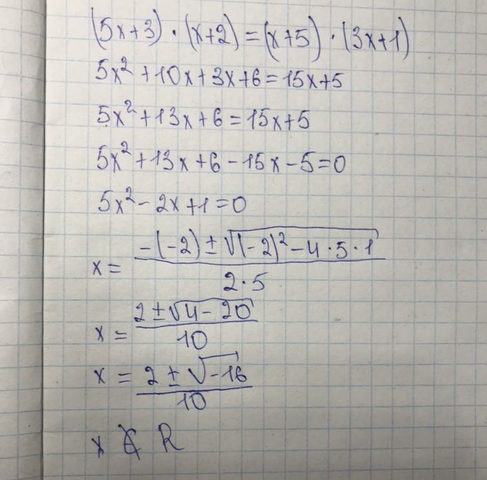 (5x+3)·(x+2)=(x+5)·(3x+1)
5x²+10x+3x+6=15x+5
5x²+13x+6=15x+5
5x²+13x+6-15x-5=0
5x²-2x+1=0
x= (-(-2)±√((-2)²-4·5·1))/(2·5)
x= (2±√(4-20))/10
x= (2±√(-16))/10
x∉R